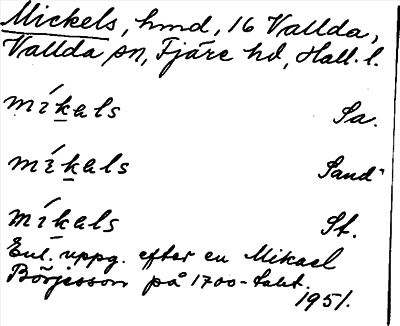 Mickels, hmd, 16 Vallda,
Vallda sn, Fjäre hd, Hall. l.
míkals Sa.
míkals Sand
míkals St.
Enl. uppg. efter en Mikael
Börjesson på 1700-talet.
1951.